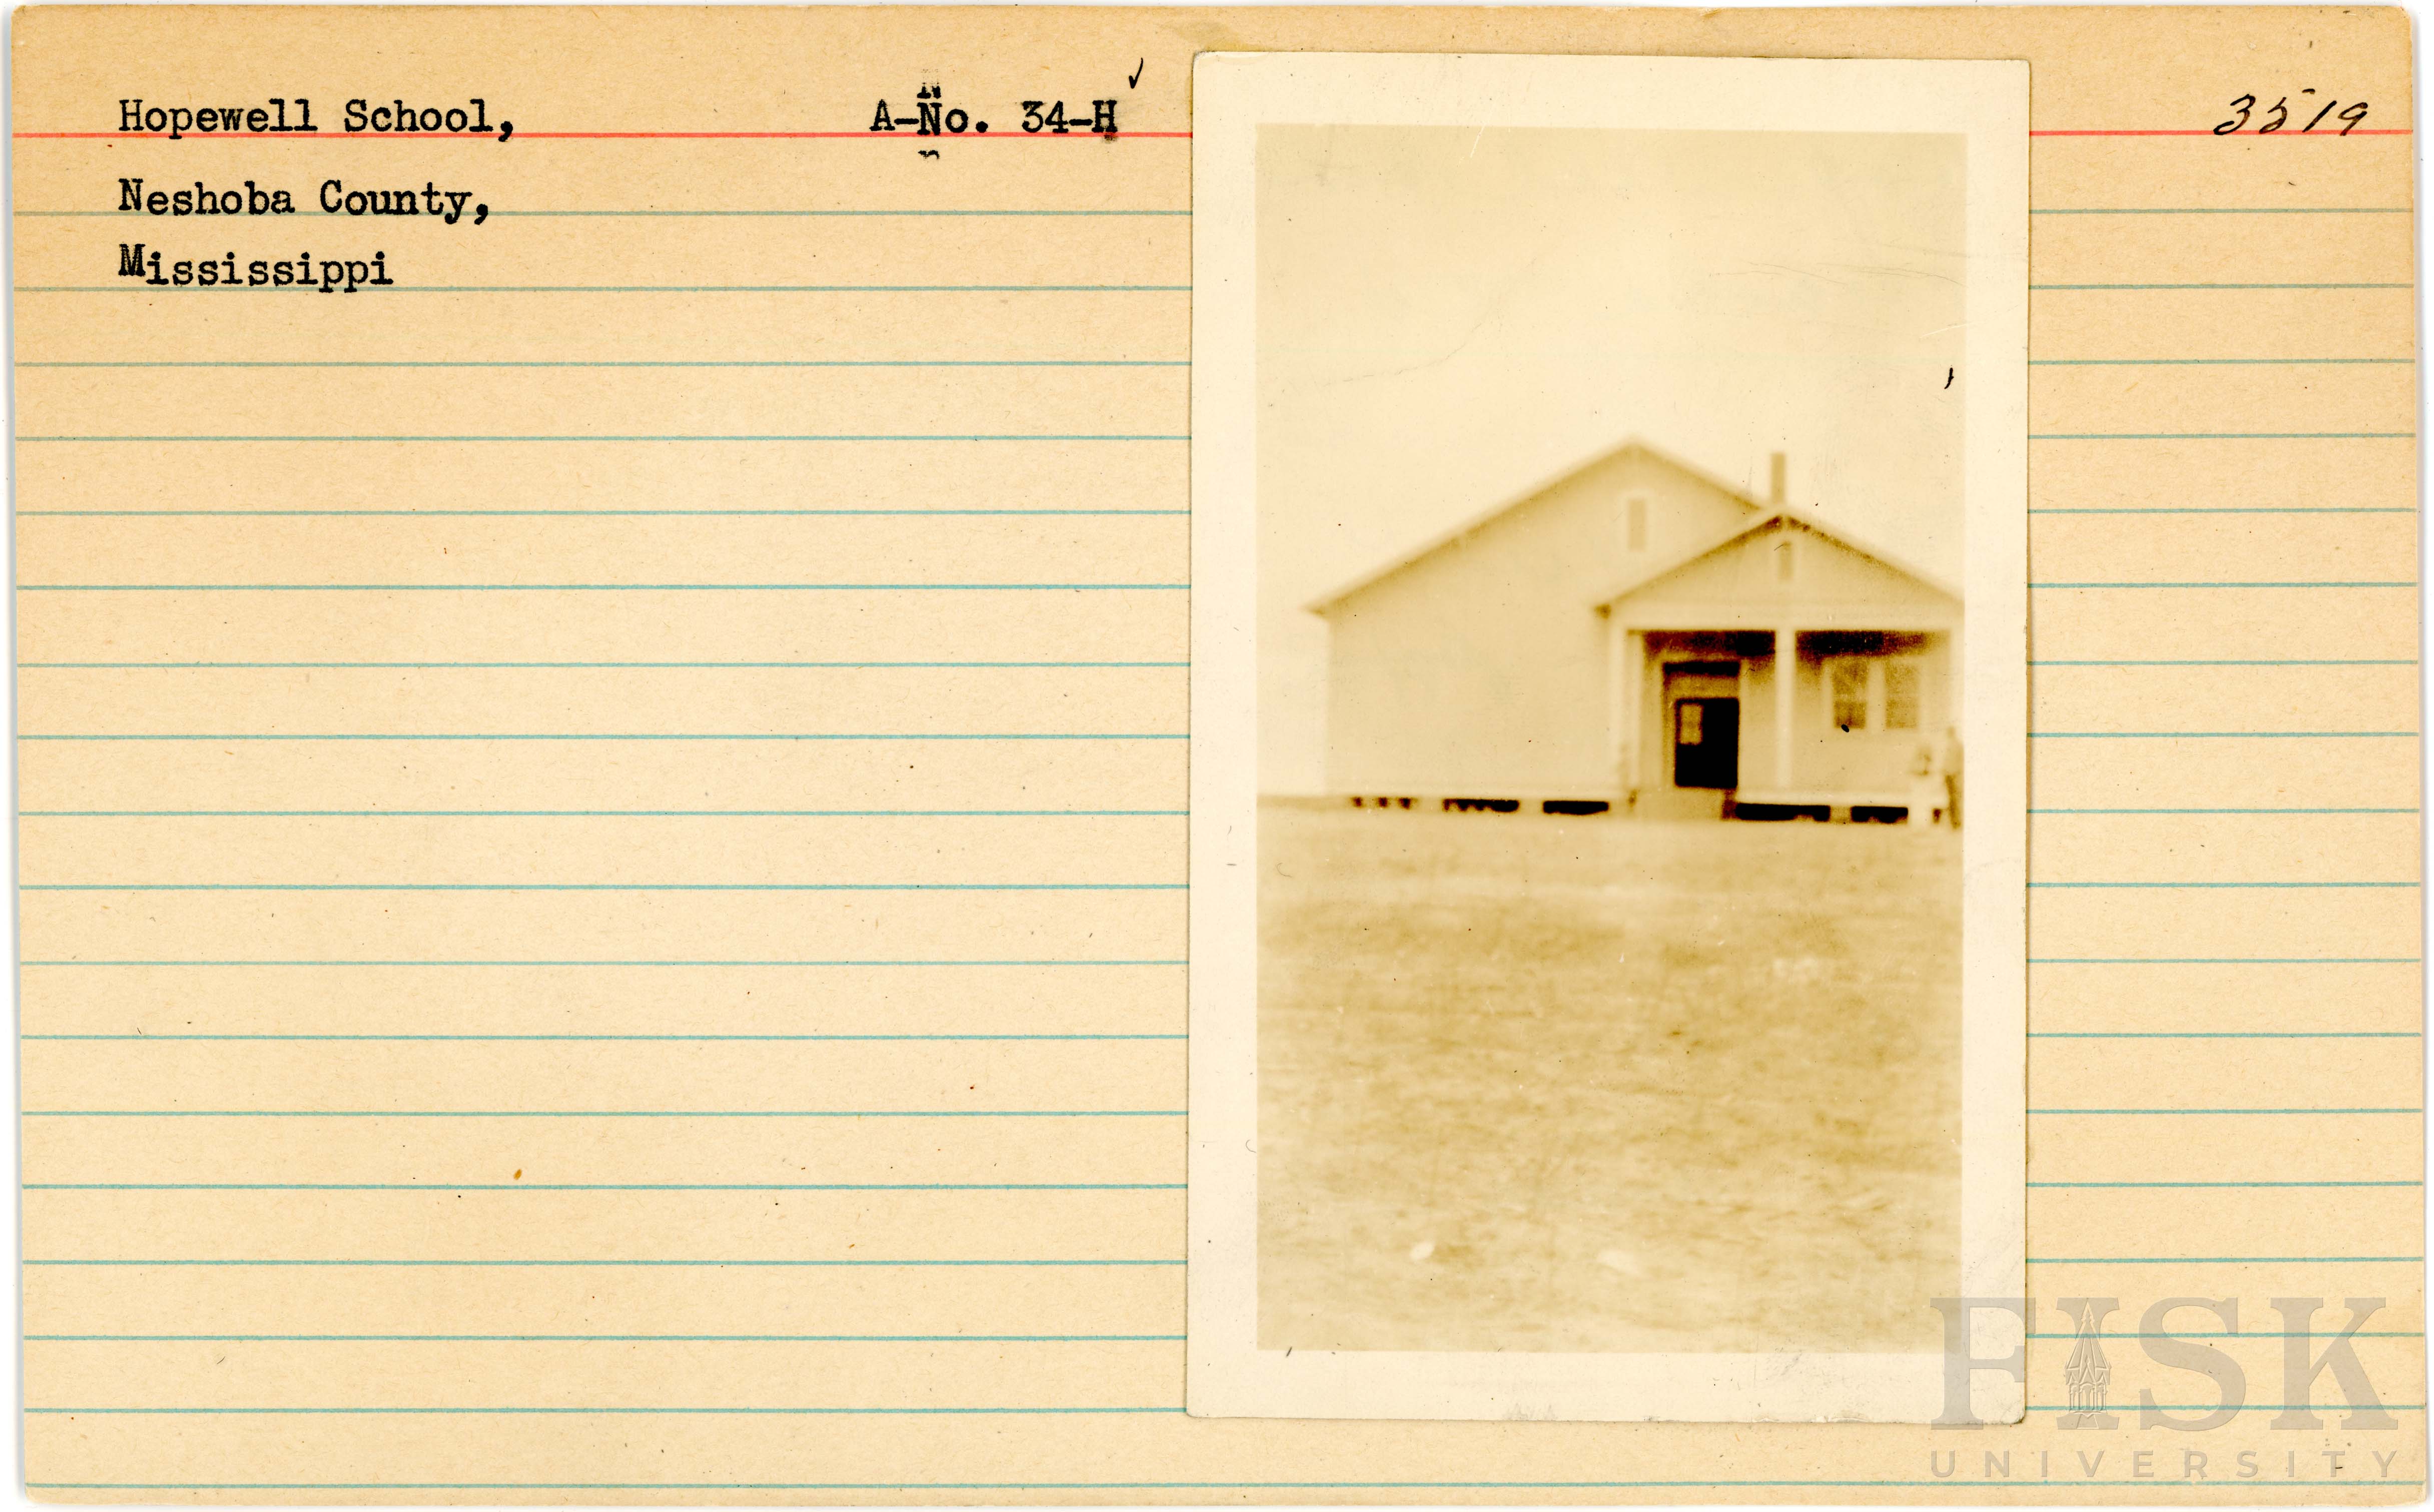 Hopewell School, A-No. 34-H ✓ 3519
Neshoba County,
Mississippi
FISK
UNIVERSITY